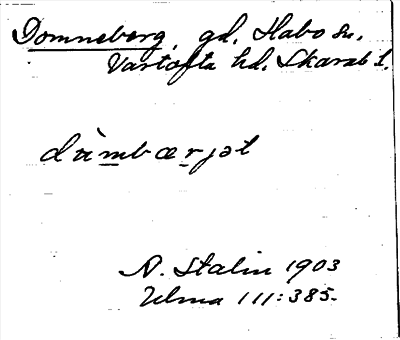 Domneberg, gd. Habo sn.
Vartofta hd. Skarab l.
dùmbærjət
A. Stalin 1903
Ulma 111:385.